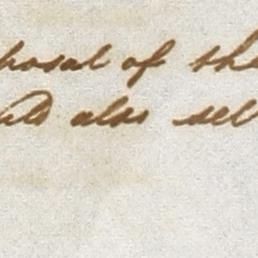 posal of the
uld also sel